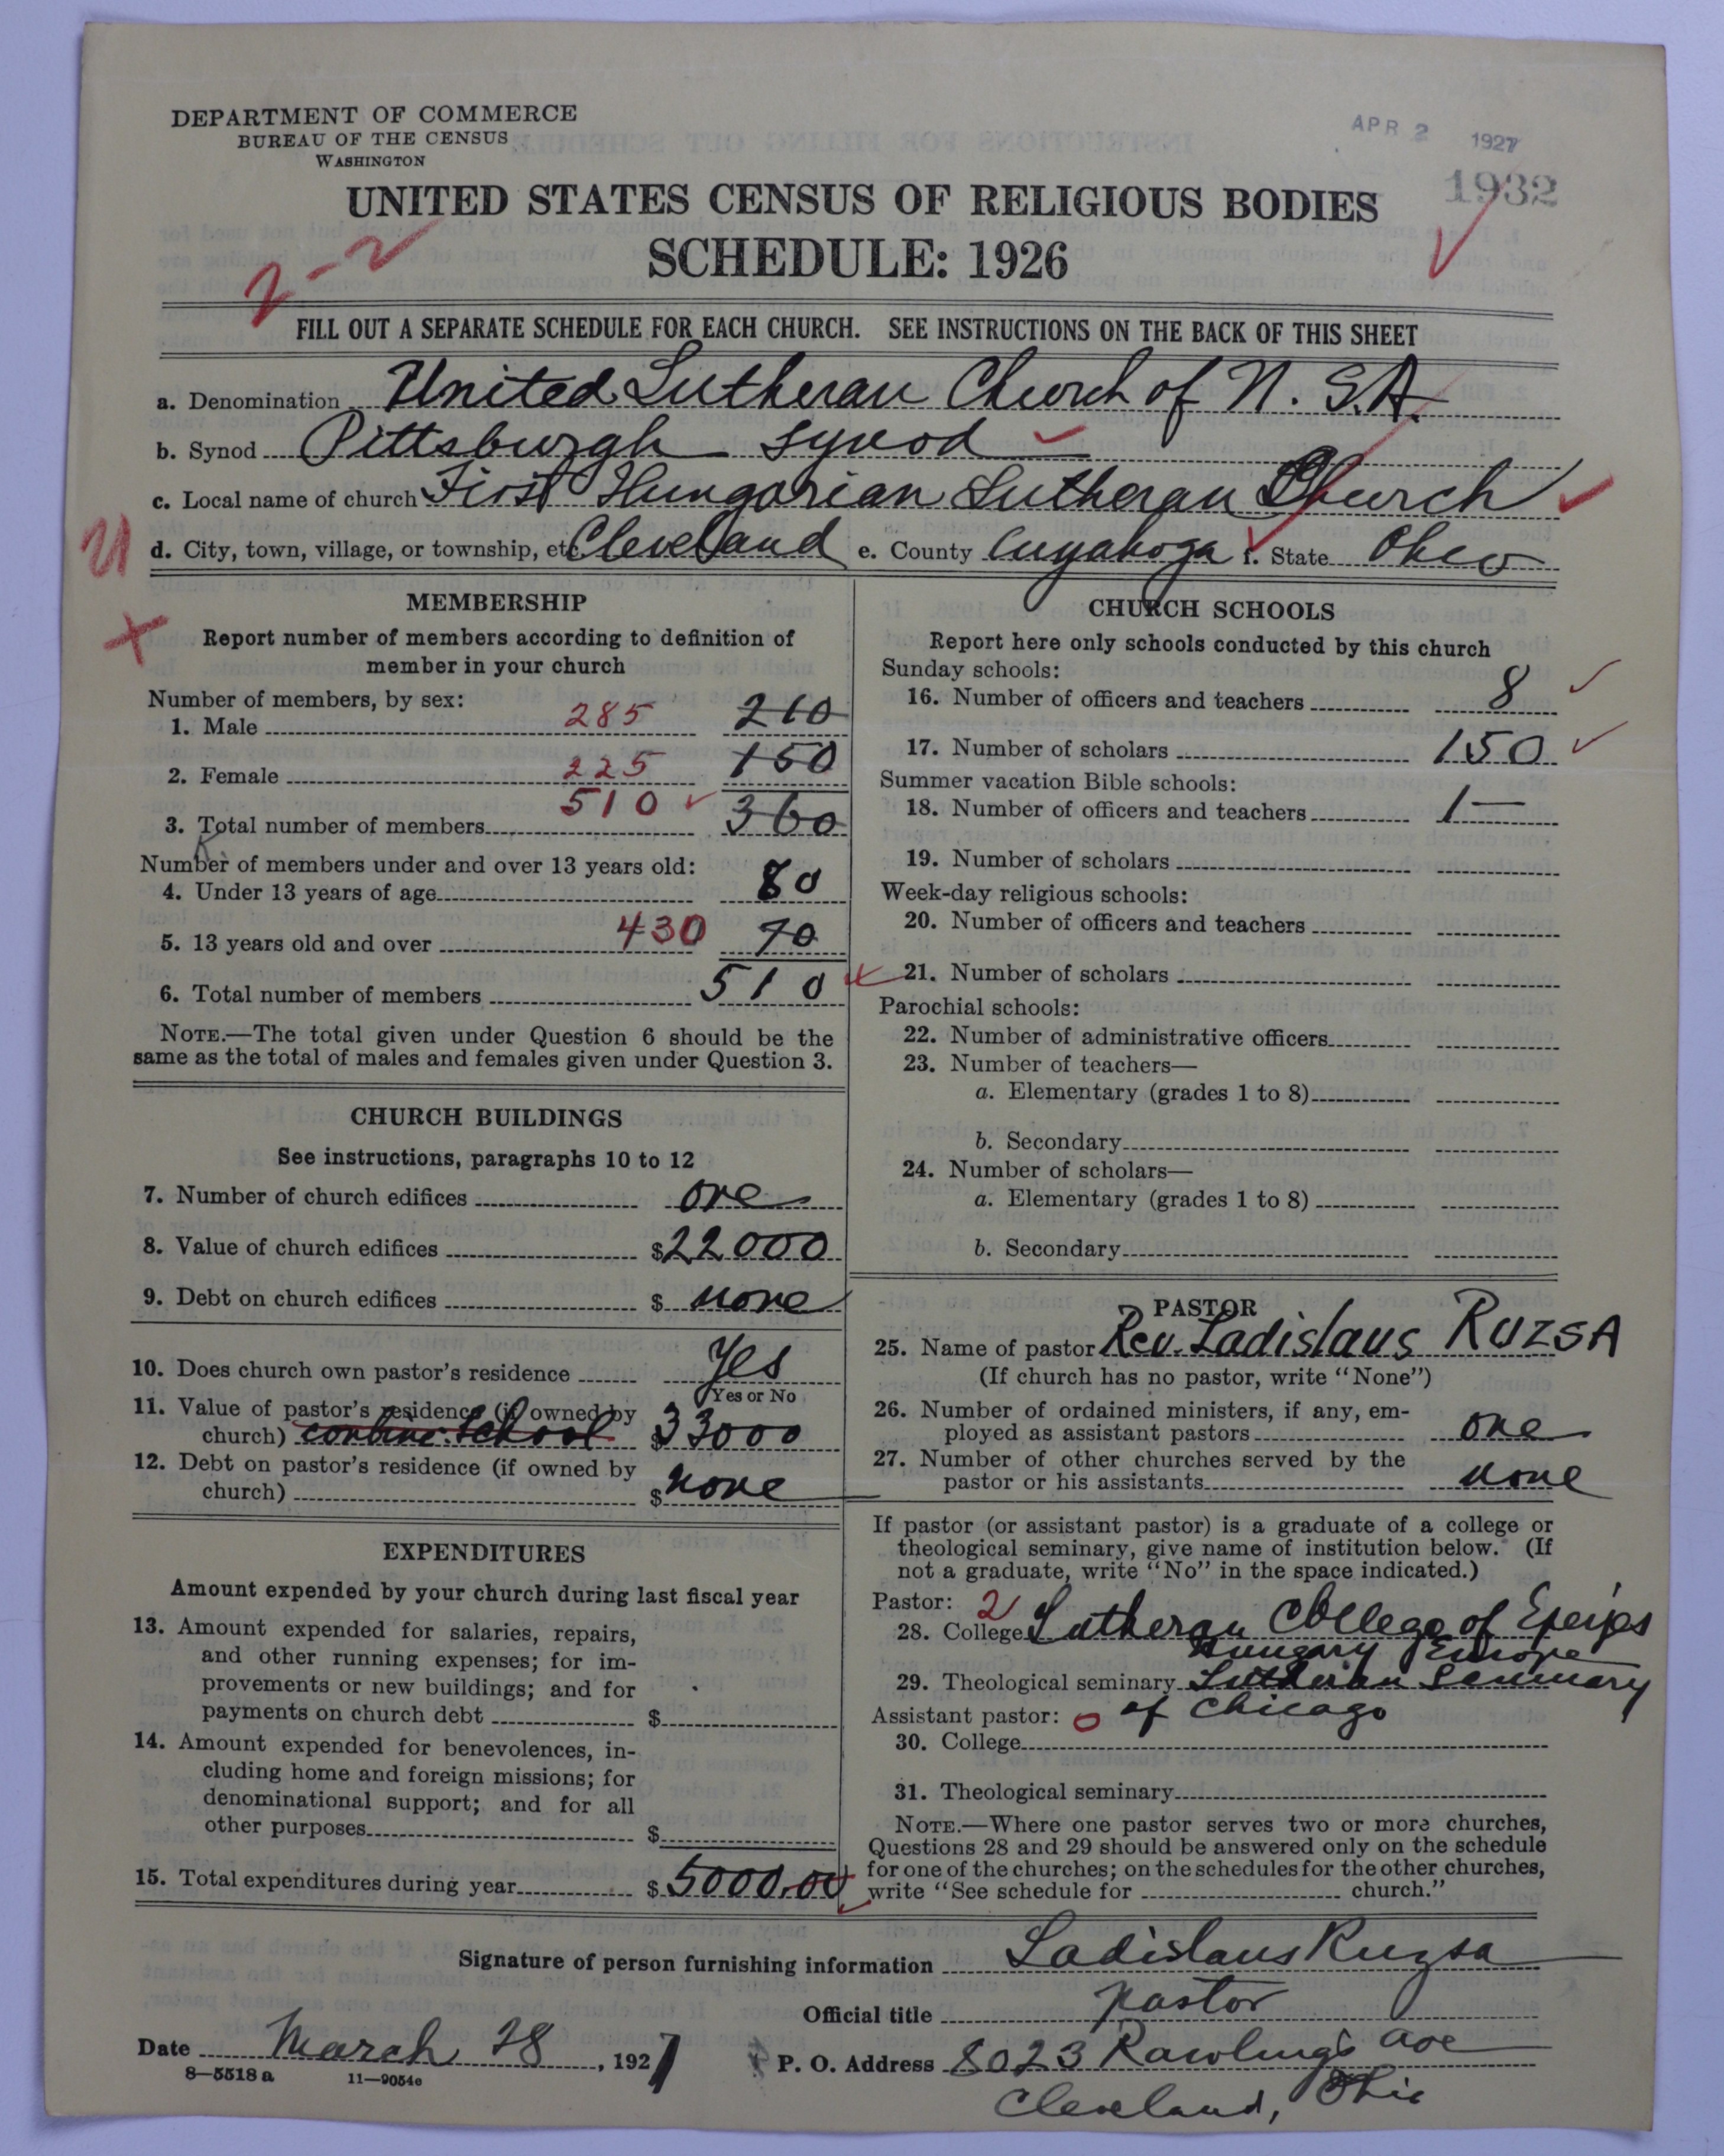 DEPARTMENT OF COMMERCE
BUREAU OF THE CENSUS
WASHINGTON
APR 2 1927
1932
UNITED STATES CENSUS OF RELIGIOUS BODIES
SCHEDULE: 1926
2-2
FILL OUT A SEPARATE SCHEDULE FOR EACH CHURCH. SEE INSTRUCTIONS ON THE BACK OF THIS SHEET
a. Denomination United Lutheran Church of N. S.A.
b. Synod Pittsburgh synod
c. Local name of church First Hungarian Lutheran Church
d. City, town, village, or township, etc. Cleveland e. County Cuyahoga f. State Ohio
MEMBERSHIP
Report number of members according to definition of
member in your church
Number of members, by sex:
1. Male 285 210
2. Female 225 150
3. Total number of members 510 360
Number of members under and over 13 years old:
4. Under 13 years of age 80
5. 13 years old and over 430 70
6. Total number of members 510
NOTE.—The total given under Question 6 should be the
same as the total of males and females given under Question 3.
CHURCH BUILDINGS
See instructions, paragraphs 10 to 12
7. Number of church edifices one
8. Value of church edifices $22000
9. Debt on church edifices $ none
10. Does church own pastor's residence Yes
Yes or No
11. Value of pastor's residence (if owned by
church) School $33000
12. Debt on pastor's residence (if owned by
church) $none
EXPENDITURES
Amount expended by your church during last fiscal year
13. Amount expended for salaries, repairs,
and other running expenses; for im-
provements or new buildings; and for
payments on church debt $
14. Amount expended for benevolences, in-
cluding home and foreign missions; for
denominational support; and for all
other purposes $
15. Total expenditures during year $5000.00
CHURCH SCHOOLS
Report here only schools conducted by this church
Sunday schools:
16. Number of officers and teachers 8
17. Number of scholars 150
Summer vacation Bible schools:
18. Number of officers and teachers 1—
19. Number of scholars
Week-day religious schools:
20. Number of officers and teachers
21. Number of scholars
Parochial schools:
22. Number of administrative officers
23. Number of teachers—
a. Elementary (grades 1 to 8)
b. Secondary
24. Number of scholars—
a. Elementary (grades 1 to 8)
b. Secondary
PASTOR
25. Name of pastor Rev. Ladislaus RUZSA
(If church has no pastor, write "None")
26. Number of ordained ministers, if any, em-
ployed as assistant pastors one
27. Number of other churches served by the
pastor or his assistants none
If pastor (or assistant pastor) is a graduate of a college or
theological seminary, give name of institution below. (If
not a graduate, write "No" in the space indicated.)
Pastor: 2
28. College Lutheran College of Eperjes
Hungary Europe
29. Theological seminary Lutheran Seminary
Assistant pastor: 0 of Chicago
30. College
31. Theological seminary
NOTE.—Where one pastor serves two or more churches,
Questions 28 and 29 should be answered only on the schedule
for one of the churches; on the schedules for the other churches,
write "See schedule for church."
Signature of person furnishing information Ladislaus Ruzsa
Official title pastor
Date March 28, 1927 P. O. Address 8023 Rawlings ave
8-5518 a 11-9054e
Cleveland, Ohio